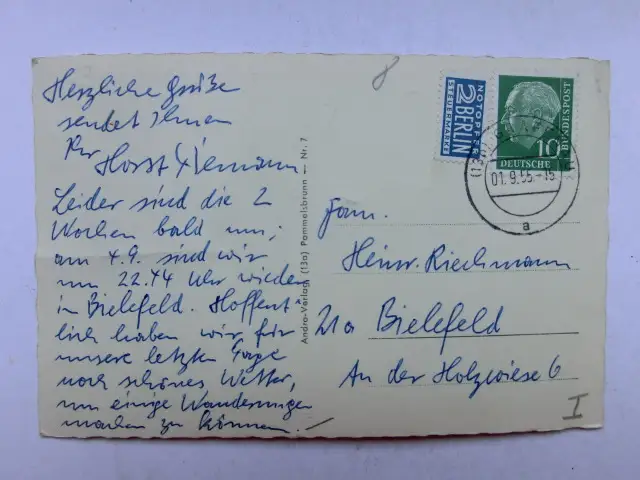 Herzliche Grüße
sendet Ihnen
Ihr Horst
Leider sind die 2
Wochen bald um;
am 4.9. sind wir
um 22.44 Uhr wieder
in Bielefeld. Hoffent-
lich haben wir für
unsere letzten Tage
noch schönes Wetter,
um einige Wanderungen
machen zu können.
Andro-Verlag (13a) Pommelsbrunn — Nr. 7
8
NOTOPFER
2 BERLIN
STEUERMARKE
DEUTSCHE
BUNDESPOST
10
01.9.55-15
a
Fam.
Heinr. Riechmann
21a Bielefeld
An der Holzwiese 6
I